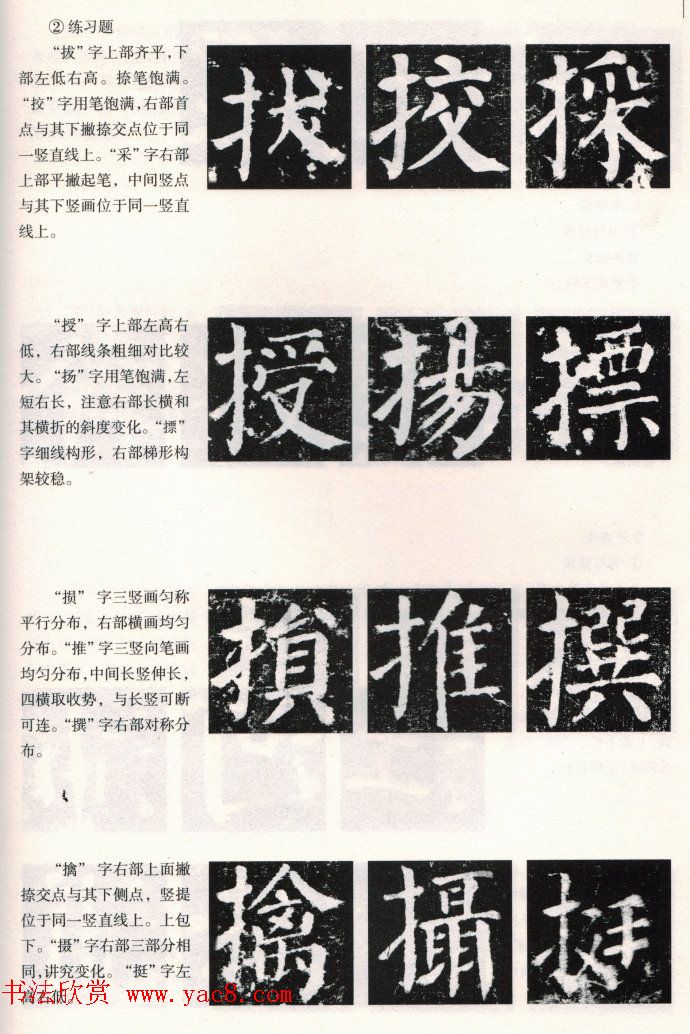 ②练习题
“拔”字上部齐平，下
部左低右高。捺笔饱满。
“挍”字用笔饱满，右部首
点与其下撇捺交点位于同
一竖直线上。“采”字右部
上部平撇起笔，中间竖点
与其下竖画位于同一竖直
线上。
拔 挍 採
“授” 字上部左高右
低，右部线条粗细对比较
大。“扬”字用笔饱满，左
短右长，注意右部长横和
其横折的斜度变化。“摽”
字细线构形，右部梯形构
架较稳。
授 揚 摽
“损” 字三竖画匀称
平行分布，右部横画均匀
分布。“推”字三竖向笔画
均匀分布，中间长竖伸长，
四横取收势，与长竖可断
可连。“撰”字右部对称分
布。
損 推 撰
“擒” 字右部上面撇
捺交点与其下侧点，竖提
位于同一竖直线上。上包
下。“摄”字右部三部分相
同，讲究变化。“挺”字左
高右低。
擒 攝 挺
书法欣赏 www.yac8.com